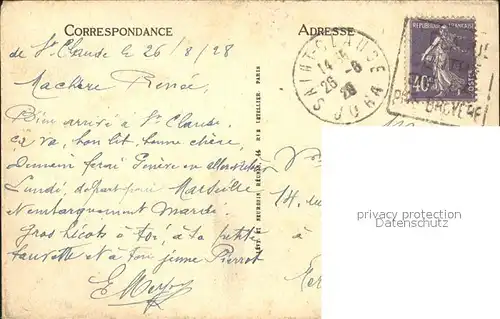 CORRESPONDANCE
ADRESSE
de St Claude le 26/8/28
Ma chère Renée,
Bien arrivé à St Claude.
ça va, bon lit, bonne chère,
Demain ferai Genève en aller et retour
Lundi, départ pour Marseille
et embarquement Mardi.
Gros bécots à toi, à la petite
fauvette et à ton jeune Pierrot
SAINT-CLAUDE
14
26 -8
28
JURA
RÉPUBLIQUE FRANÇAISE
POSTES
40c
LÉVY ET NEURDEIN RÉUNIS, 44 RUE LETELLIER, PARIS
14,
à
privacy protection
Datenschutz